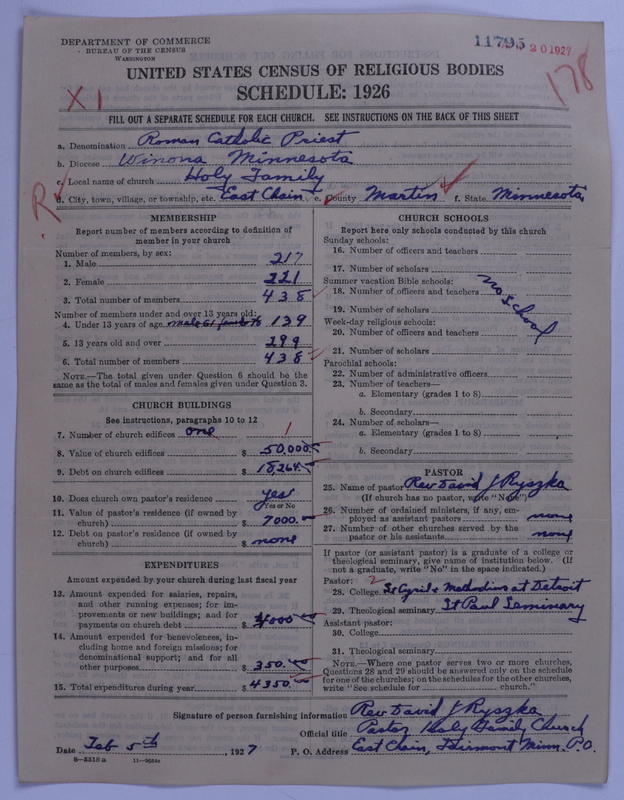 DEPARTMENT OF COMMERCE
BUREAU OF THE CENSUS
WASHINGTON
11795
20 1927
178
X 1
UNITED STATES CENSUS OF RELIGIOUS BODIES
SCHEDULE: 1926
FILL OUT A SEPARATE SCHEDULE FOR EACH CHURCH. SEE INSTRUCTIONS ON THE BACK OF THIS SHEET
a. Denomination Roman Catholic Priest
b. Diocese Winona Minnesota
c. Local name of church Holy Family
d. City, town, village, or township, etc. East Chain e. County Martin f. State Minnesota
R
MEMBERSHIP
Report number of members according to definition of member in your church
Number of members, by sex:
1. Male 217
2. Female 221
3. Total number of members 438
Number of members under and over 13 years old:
4. Under 13 years of age male 61 139
5. 13 years old and over 299
6. Total number of members 438
NOTE.—The total given under Question 6 should be the
same as the total of males and females given under Question 3.
CHURCH BUILDINGS
See instructions, paragraphs 10 to 12
7. Number of church edifices one 1
8. Value of church edifices $ 50,000.00
9. Debt on church edifices $ 18,264.00
10. Does church own pastor's residence yes
Yes or No
11. Value of pastor's residence (if owned by
church) $ 7000.00
12. Debt on pastor's residence (if owned by
church) $ none
EXPENDITURES
Amount expended by your church during last fiscal year
13. Amount expended for salaries, repairs,
and other running expenses; for im-
provements or new buildings; and for
payments on church debt $ 4000.00
14. Amount expended for benevolences, in-
cluding home and foreign missions; for
denominational support; and for all
other purposes $ 350.00
15. Total expenditures during year $ 4350.00
CHURCH SCHOOLS
Report here only schools conducted by this church
Sunday schools:
16. Number of officers and teachers
17. Number of scholars
Summer vacation Bible schools:
18. Number of officers and teachers
no School
19. Number of scholars
Week-day religious schools:
20. Number of officers and teachers
21. Number of scholars
Parochial schools:
22. Number of administrative officers
23. Number of teachers—
a. Elementary (grades 1 to 8)
b. Secondary
24. Number of scholars—
a. Elementary (grades 1 to 8)
b. Secondary
PASTOR
25. Name of pastor Rev David J Ryszka
(If church has no pastor, write "None")
26. Number of ordained ministers, if any, em-
ployed as assistant pastors none
27. Number of other churches served by the
pastor or his assistants none
If pastor (or assistant pastor) is a graduate of a college or
theological seminary, give name of institution below. (If
not a graduate, write "No" in the space indicated.)
Pastor: 2
28. College St Cyril & Methodius at Detroit
29. Theological seminary St Paul Seminary
Assistant pastor:
30. College
31. Theological seminary
NOTE.—Where one pastor serves two or more churches,
Questions 28 and 29 should be answered only on the schedule
for one of the churches; on the schedules for the other churches,
write "See schedule for church."
Signature of person furnishing information Rev David J Ryszka
Official title Pastor Holy Family Church
Date Feb 5th, 1927 P. O. Address East Chain, Fairmont Minn. P.O.
8—5318a